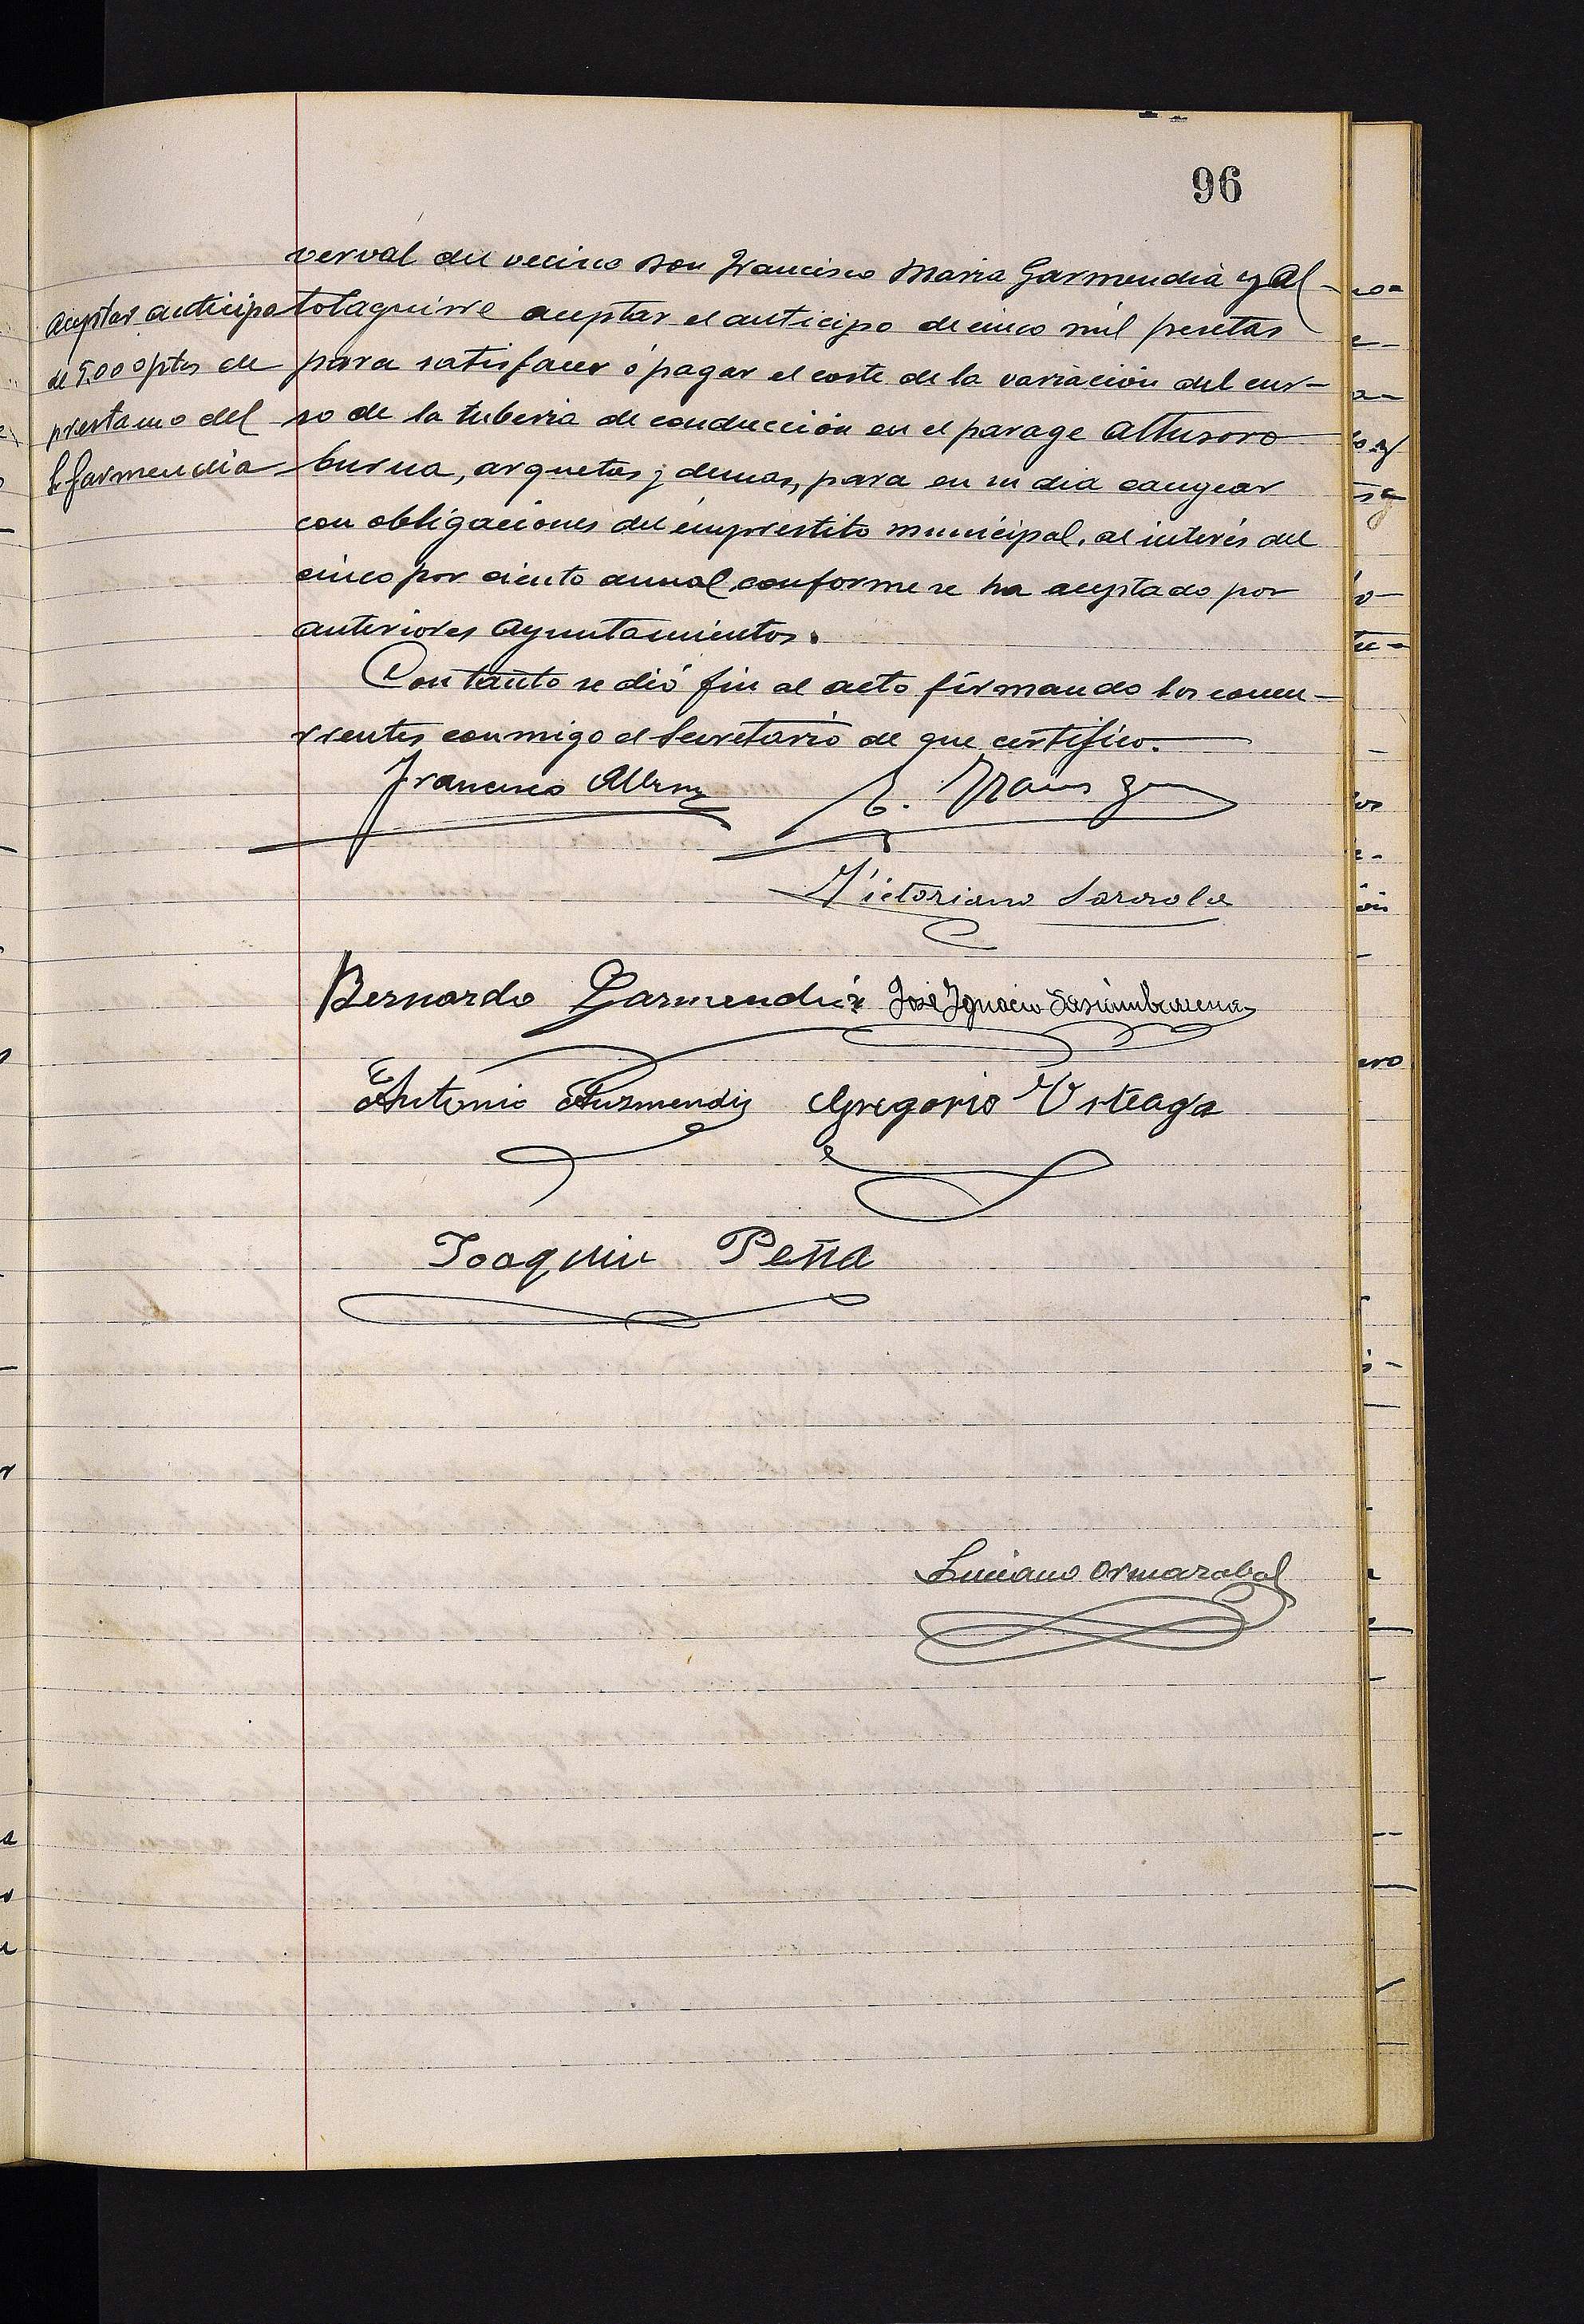 96
verval del vecino Don Francisco Maria Garmendia y Al-
tolaguirre aceptar el anticipo de cinco mil pesetas
para satisfacer ó pagar el coste de la variación del cur-
so de la tuberia de conducción en el parage Altusoro
burua, arquetas y demas, para en su dia cangear
con obligaciones del emprestito municipal, al interés del
cinco por ciento anual conforme se ha aceptado por
anteriores Ayuntamientos.
Aceptar anticipo
de 5.000 ptas de
prestamo del
Sr Garmendia
Con tanto se dió fin al acto firmando los concu-
rrentes conmigo el Secretario de que certifico.
Francisco
Victoriano Sarrola
Bernardo Garmendia José Ignacio Sasiambarrena
Antonio Auzmendi Gregorio Usteaga
Joaquin Peña
Luciano Ormazabal